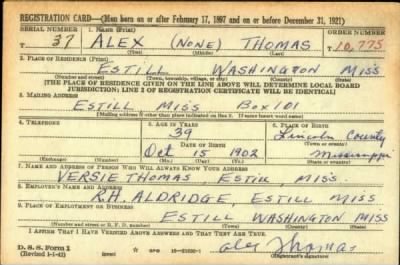 REGISTRATION CARD—(Men born on or after February 17, 1897 and on or before December 31, 1921)
SERIAL NUMBER 1. NAME (Print) ORDER NUMBER
T 37 ALEX (NONE) THOMAS T10,775
(First) (Middle) (Last)
2. PLACE OF RESIDENCE (Print)
ESTILL WASHINGTON MISS
(Number and street) (Town, township, village, or city) (County) (State)
[THE PLACE OF RESIDENCE GIVEN ON THE LINE ABOVE WILL DETERMINE LOCAL BOARD
JURISDICTION; LINE 2 OF REGISTRATION CERTIFICATE WILL BE IDENTICAL]
3. MAILING ADDRESS
ESTILL MISS BOX 101
[Mailing address if other than place indicated on line 2. If same insert word same]
4. TELEPHONE 5. AGE IN YEARS 6. PLACE OF BIRTH
39 Lincoln County
DATE OF BIRTH (Town or county)
Oct 15 1902 Mississippi
(Exchange) (Number) (Mo.) (Day) (Yr.) (State or country)
7. NAME AND ADDRESS OF PERSON WHO WILL ALWAYS KNOW YOUR ADDRESS
VERSIE THOMAS, ESTILL MISS
8. EMPLOYER'S NAME AND ADDRESS
R.H. ALDRIDGE, ESTILL MISS
9. PLACE OF EMPLOYMENT OR BUSINESS
ESTILL WASHINGTON MISS
(Number and street or R. F. D. number) (Town) (County) (State)
I AFFIRM THAT I HAVE VERIFIED ABOVE ANSWERS AND THAT THEY ARE TRUE.
D. S. S. Form 1
(Revised 1-1-42) GPO Alex Thomas
(Registrant's signature)